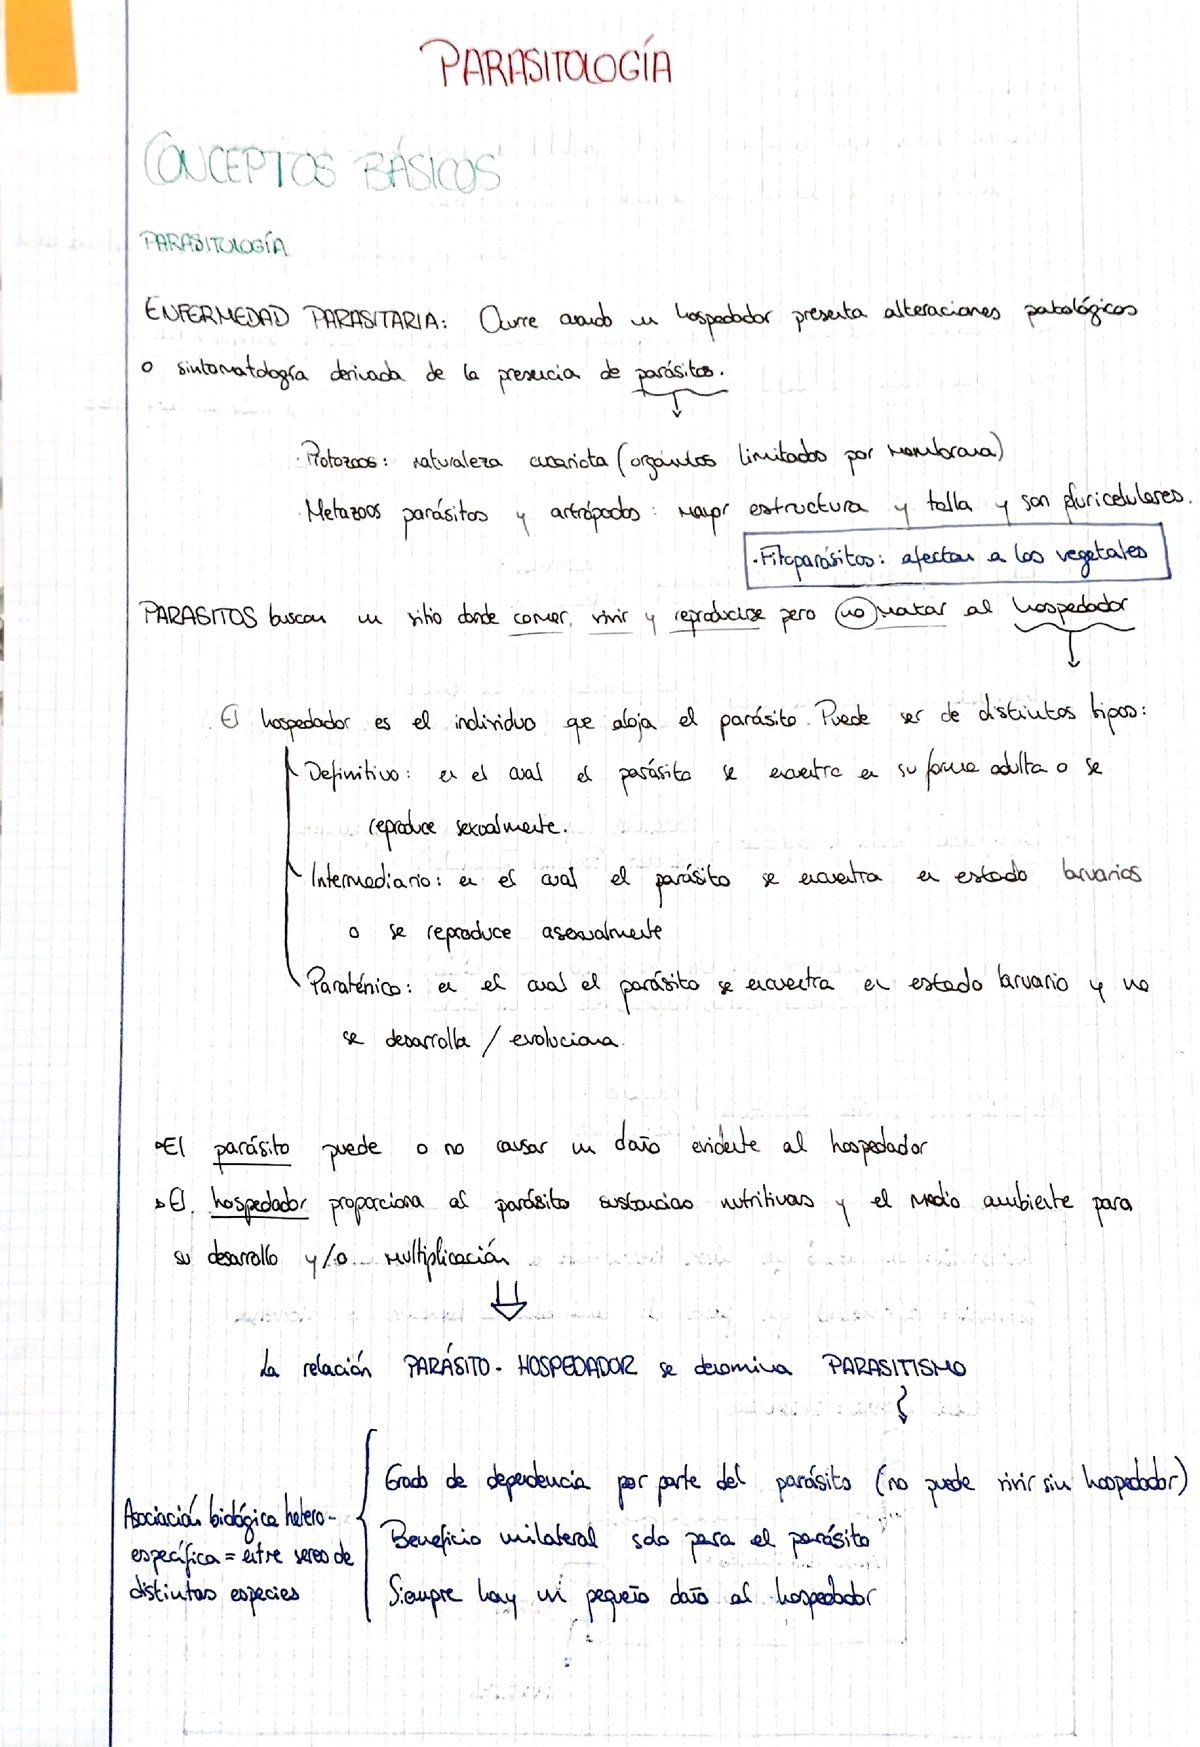 PARASITOLOGÍA
CONCEPTOS BÁSICOS
PARASITOLOGÍA
ENFERMEDAD PARASITARIA: Ocurre cuando un hospedador presenta alteraciones patológicas
o sintomatología derivada de la presencia de parásitos.
· Protozoos: naturaleza eucariota (orgánulos limitados por membrana)
· Metazoos parásitos y artrópodos: mayor estructura y talla y son pluricelulares.
· Fitoparásitos: afectan a los vegetales
PARASITOS buscan un sitio donde comer, vivir y reproducirse pero no matar al hospedador
El hospedador es el individuo que aloja el parásito. Puede ser de distintos tipos:
Definitivo: en el cual el parásito se encuentre en su forma adulta o se
reproduce sexualmente.
Intermediario: en el cual el parásito se encuentra en estado larvarios
o se reproduce asexualmente
Paraténico: en el cual el parásito se encuentra en estado larvario y no
se desarrolla / evoluciona.
El parásito puede o no causar un daño evidente al hospedador
El hospedador proporciona al parásito sustancias nutritivas y el medio ambiente para
su desarrollo y/o multiplicación
La relación PARÁSITO - HOSPEDADOR se denomina PARASITISMO
Asociación biológica hetero-
específica = entre seres de
distintas especies
Grado de dependencia por parte del parásito (no puede vivir sin hospedador)
Beneficio unilateral solo para el parásito
Siempre hay un pequeño daño al hospedador